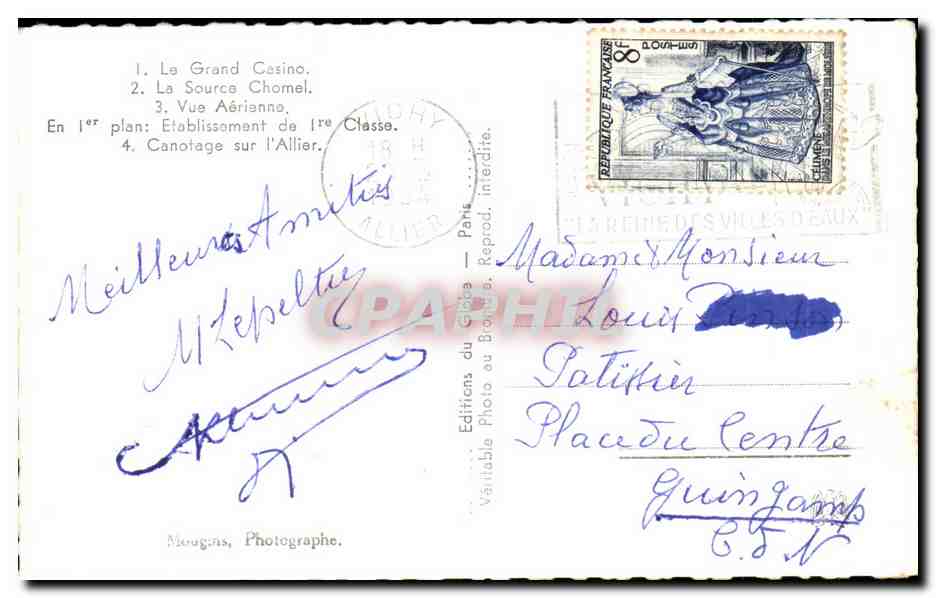 1. Le Grand Casino.
2. La Source Chomel.
3. Vue Aérienne.
En 1er plan: Etablissement de 1re Classe.
4. Canotage sur l'Allier.
VICHY
ALLIER
8F
POSTES
RÉPUBLIQUE FRANÇAISE
VICHY
"LA REINE DES VILLES D'EAUX"
Meilleures Amitiés
M Lepeltier
CPARHI
Editions du Globe — Paris
Véritable Photo au Bromure. Reprod. interdite.
Madame & Monsieur
Louis
Patissier
Place du Centre
Guingamp
C. d N
Mougins, Photographe.